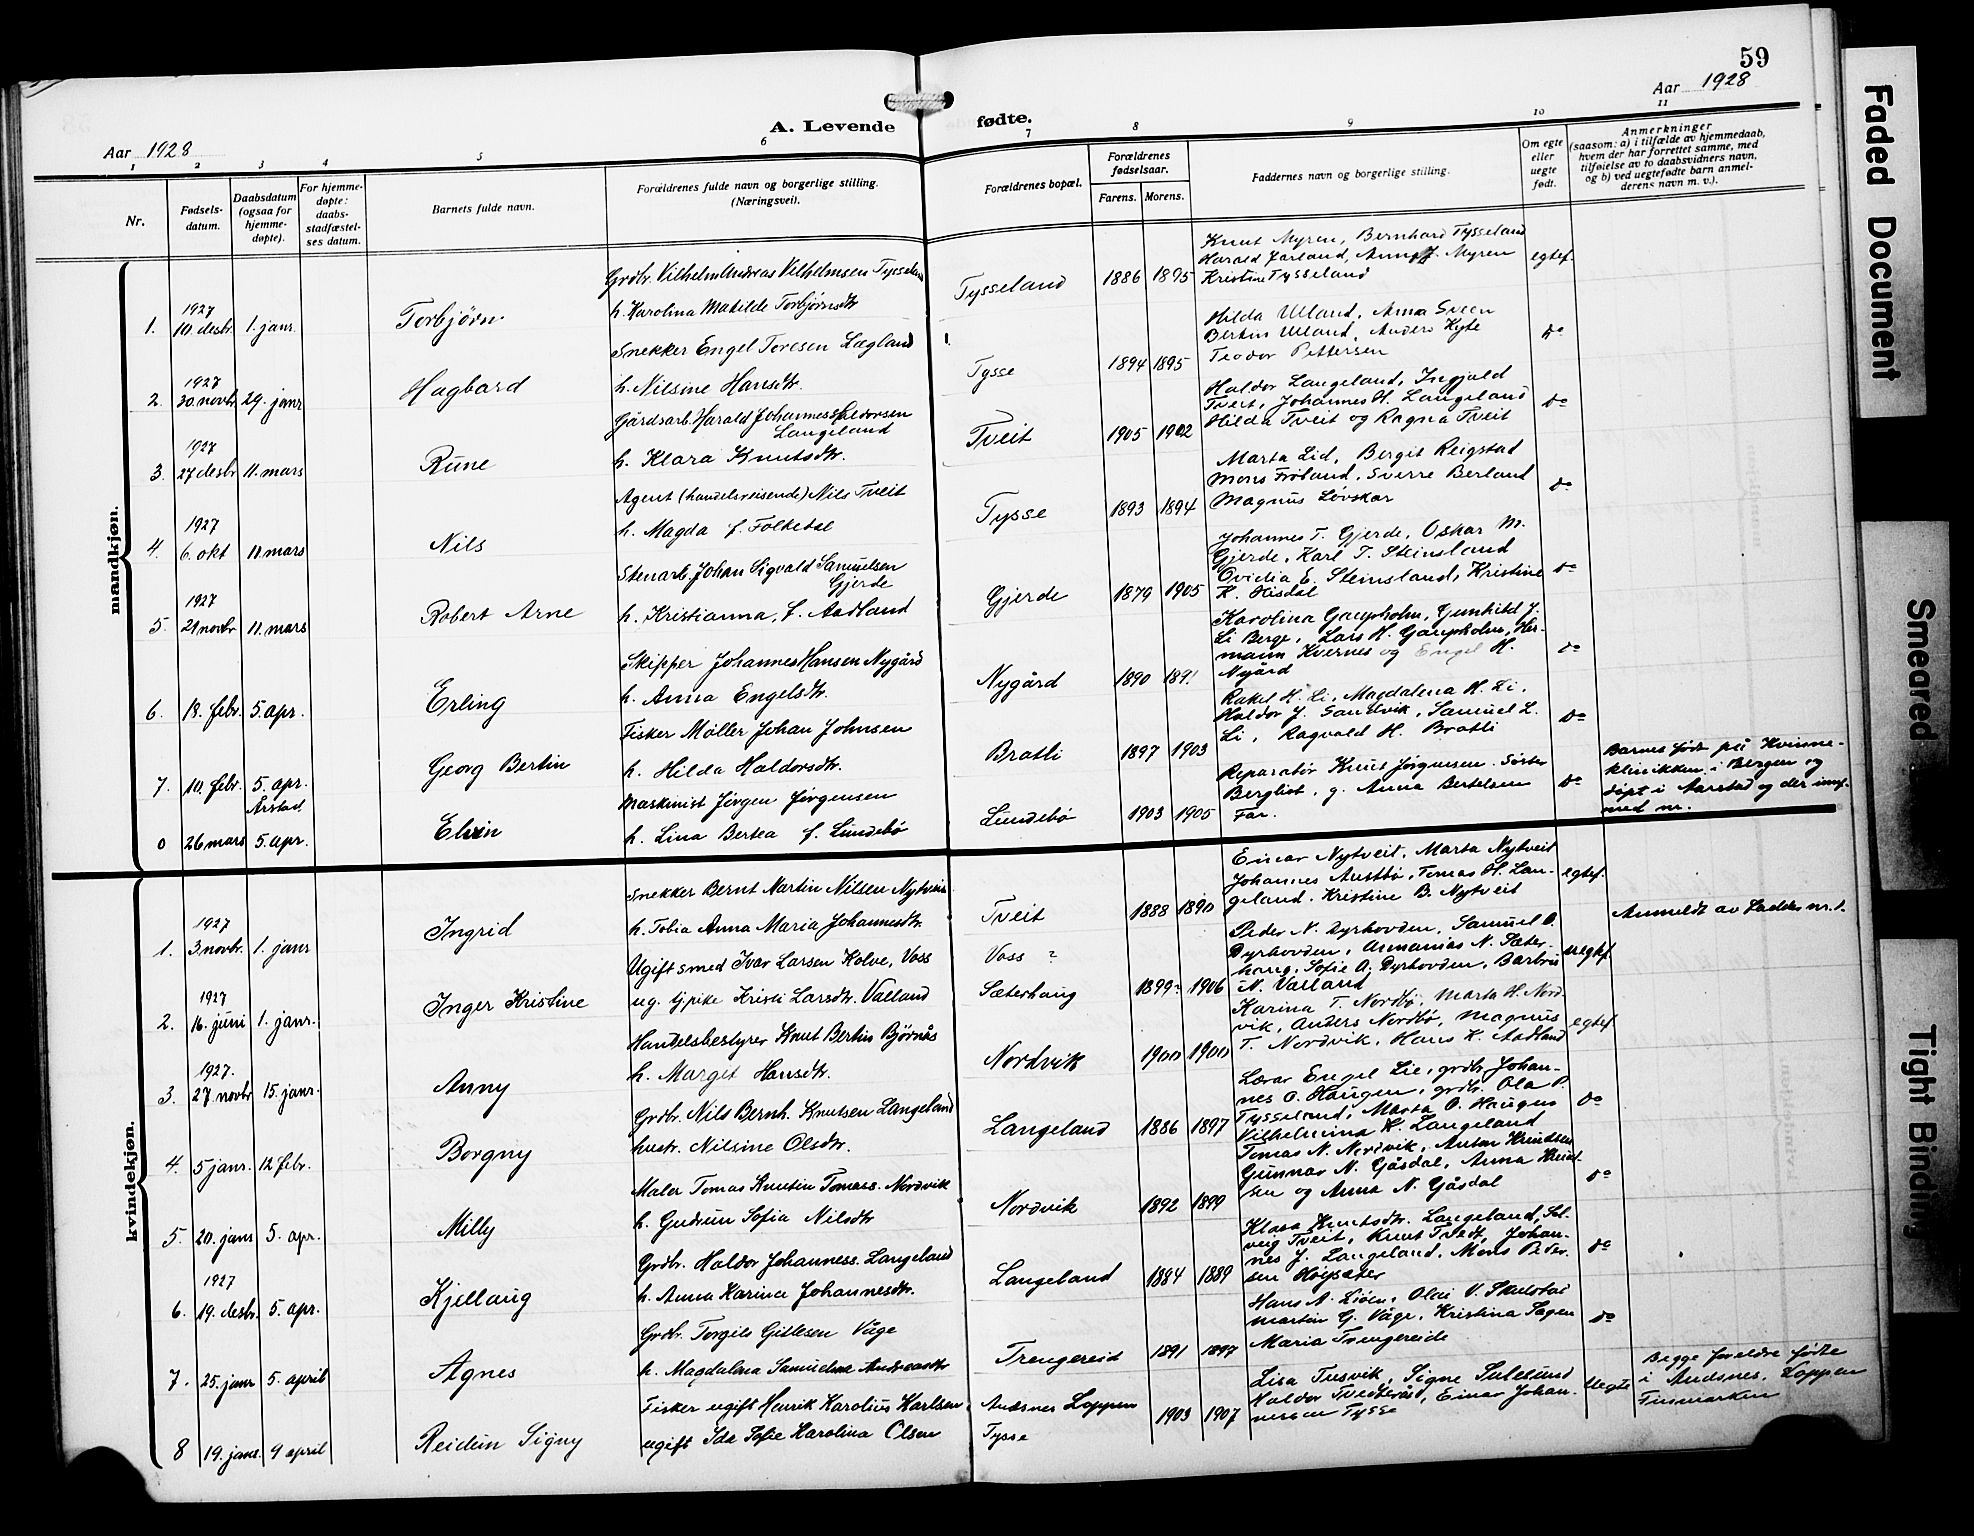 59
Aar 1928
Aar 1928
A. Levende fødte.
1 2 3 4 5 6 7 8 9 10 11
Nr.
Fødsels-
datum.
Daabsdatum
(ogsaa for
hjemme-
døpte).
For hjemme-
døpte:
daabs-
stadfæstel-
ses datum.
Barnets fulde navn.
Forældrenes fulde navn og borgerlige stilling.
(Næringsvei).
Forældrenes bopæl.
Forældrenes
fødselsaar.
Farens. Morens.
Faddernes navn og borgerlige stilling.
Om egte
eller
uegte
født.
Anmerkninger
(saasom: a) i tilfælde av hjemmedaab,
hvem der har forrettet samme, med
tilføielse av to daabsvidners navn,
og b) ved uegtefødte barn anmel-
derens navn m. v.).
mandkjøn.
1. 1927 10. desbr. 1. janr. Torbjørn
Grdbr. Vilhelm Andreas Vilhelmsen Tysseland
h. Karolina Matilde Torbjørnsdtr
Tysseland 1886 1895
Knut Myren, Bernhard Tysseland
Harald Førland, Anna J. Myren
Kristine Tysseland
egtef.
2. 1927 30. novbr. 29. janr Hagbard
Snekker Engel Toresen Lægland
h. Nilsine Hansdtr.
Tysse 1894 1895
Hilda Ulland, Anna Sveen
Bertin Ulland, Anders Hyte
Teodor Pettersen
do
3. 1927 27 desbr 11. mars Rune
Gårdsarb. Harald Johannes Haldorsen
Langeland
h. Klara Knutsdtr.
Tveit 1905 1902
Haldor Langeland, Ingjald
Tveit, Johannes H. Langeland
Hilda Tveit og Ragna Tveit
do
4. 1927 6. okt 11. mars Nils
Agent (handelsreisende) Nils Tveit
h. Magda f. Folkedal
Tysse 1893 1894
Marta Lid, Bergit Reigstad
Mons Frøland, Sverre Berland
Magnus Løvskar
do
5. 1927 21 novbr 11. mars Robert Arne
Stenarb. Johan Sigvald Samuelsen
Gjerde
h. Kristianna, f. Aadland
Gjerde 1879 1905
Johannes T. Gjerde, Oskar M.
Gjerde, Karl T. Steinsland
Ovidia E. Steinsland, Kristine
K. Hisdal
do
6. 18. febr. 5. apr. Erling
Skipper Johannes Hansen Nygård
h. Anna Engelsdtr.
Nygård 1890 1891
Karolina Gaupholm, Gunhild J.
Li Berge, Lars H. Gaupholm, Her-
mann Kvernes og Engel H.
Nygård
do
7. 10. febr. 5. apr. Georg Bertin
Fisker Møller Johan Johnsen
h. Hilda Haldorsdtr.
Bratli 1897 1903
Rakel H. Li, Magdalena H. Li,
Haldor J. Sandvik, Samuel L.
Li, Ragvald H. Bratli
do
0 26 mars Årstad 5. apr. Elvin
Maskinist Jørgen Jørgensen
h. Lina Bertea f. Lundebø
Lundebø 1903 1905
Reparatør Knut Jørgensen. Søster
Bergliot, g. Anna Bertelsen
Far.
do
Barnet født på Kvinne-
klinikken i Bergen og
døpt i Aarstad og der innf.
med nr.
kvindekjøn.
1. 1927 3 novbr. 1. janr Ingrid
Snekker Bernt Martin Nilsen Nytveit
h. Tobia Anna Maria Johannesdtr.
Tveit 1888 1890
Einar Nytveit, Marta Nytveit
Johannes Austbø, Tomas H. Lan-
geland. Kristine B. Nytveit
egtef.
2. 1927 16. juni 1. janr. Inger Kristine
Ugift smed Ivar Larsen Kolve, Voss
ug. pike Kristi Larsdtr. Valland
Voss ?
Sæterhaug 1899? 1906
Peder N. Dyrhovden, Samuel O.
Dyrhovden, Annanias N. Sæter-
haug, Sofie A. Dyrhovden, Barbro
N. Valland
uegtef.
Anmeldt av Fadder nr. 1.
3. 1927. 27 novbr 15. janr. Anny
Handelsbestyrer Knut Bertin Bjørnås
h. Margit Hansdtr.
Nordvik 1900 1900
Karina T. Nordbø, Marta H. Nord-
vik, Anders Nordbø, Magnus
T. Nordvik, Hans K. Aadland
egtef.
4. 5 janr. 12 febr. Borgny
Grdbr. Nils Bernh. Knutsen Langeland
hustr. Nilsine Olsdtr.
Langeland 1886 1897
Lærer Engel Lie, grdbr. Johan-
nes O. Haugen, grdbr. Ola P.
Tysseland, Marta O. Haugen
Vilhelmina K. Langeland
do
5. 20. janr 5. apr. Milly
Maler Tomas Knutin Tomass. Nordvik
h. Gudrun Sofia Nilsdtr
Nordvik 1892 1899
Tomas N. Nordvik, Anton Knudsen
Gunnar N. Gåsdal, Anna Knud-
sen og Anna N. Gåsdal
do
6. 1927 19. desbr. 5. apr. Kjellaug
Grdbr. Haldor Johanness. Langeland
h. Anna Karina Johannesdtr.
Langeland 1884 1889
Klara Knutsdtr. Langeland, Sol-
veig Tveit, Knut Tvedt, Johan-
nes J. Langeland, Mons Peder-
sen Høysæter
do
7. 25. janr 5. april Agnes
Grdbr. Torgils Gitlesen Våge
h. Magdalena Samueline Andreasdtr
Trengereid 1891 1897
Hans A. Liøen, Olai V. Skulstad
Martin G. Våge, Kristina Sagen
Maria Trengereide
do
8 19. janr. 9 april Reidun Signy
Fisker ugift Henrik Karolius Karlsen,
ugift Ida Sofie Karolina Olsen
Andsnes Loppen
Tysse 1903 1907
Lisa Tusvik, Signe Sulesund
Haldor Tvedterås, Einar Johan-
nessen Tysse
Uegte
Begge foreldre fødte
i Andsnes, Loppen
Finmarken
Faded Document
Smeared
Tight Binding